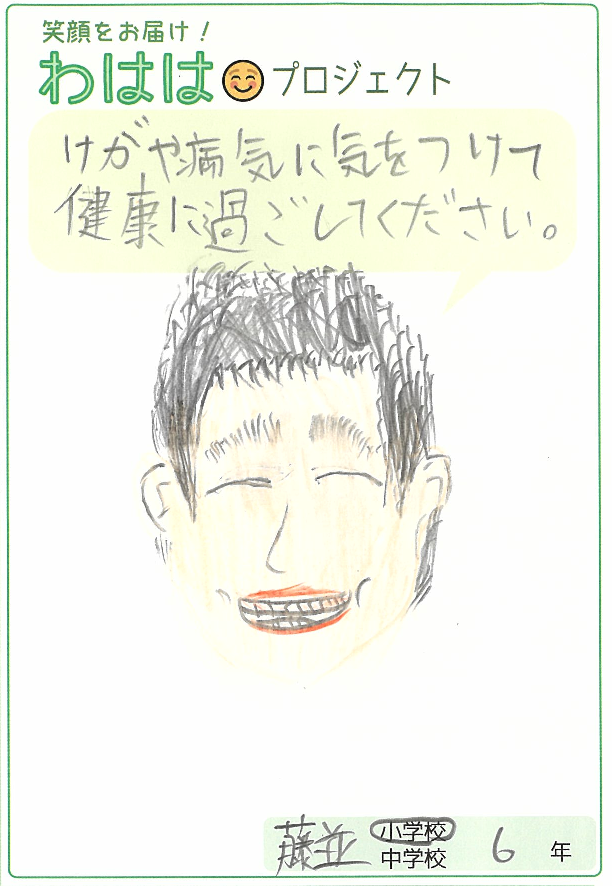 笑顔をお届け！
わはは プロジェクト
けがや病気に気をつけて
健康に過ごしてください。
藤並 小学校 6 年
中学校